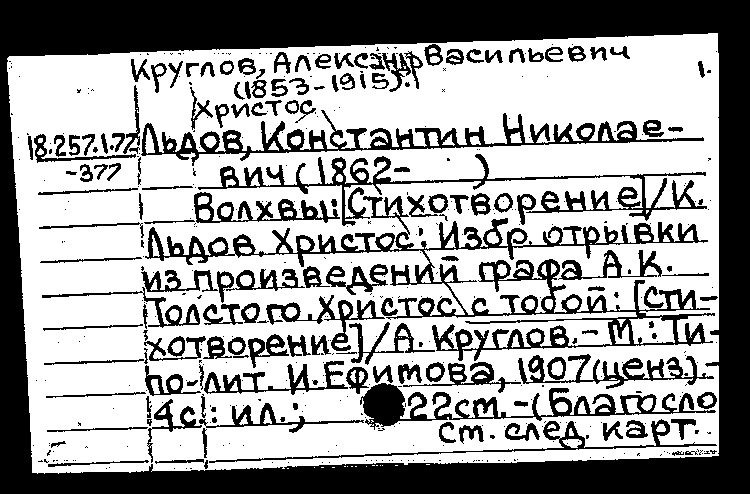 Круглов, Александр Васильевич
(1853-1915).
1.
Христос
18.257.1.77
-377
Львов, Константин Николае-
вич (1862- )
Волхвы: [Стихотворение]/К.
Львов. Христос: Избр. отрывки
из произведений графа А.К.
Толстого. Христос с тобой: [сти-
хотворение]/А. Круглов. - М.: Ти-
по-лит. И. Ефимова, 1907 (ценз.). -
4с.: ил.; 22см. - (Благосло
см. след. карт.